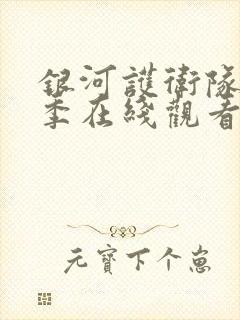 銀河護衛隊
季在綫觀看
元寶下个崽